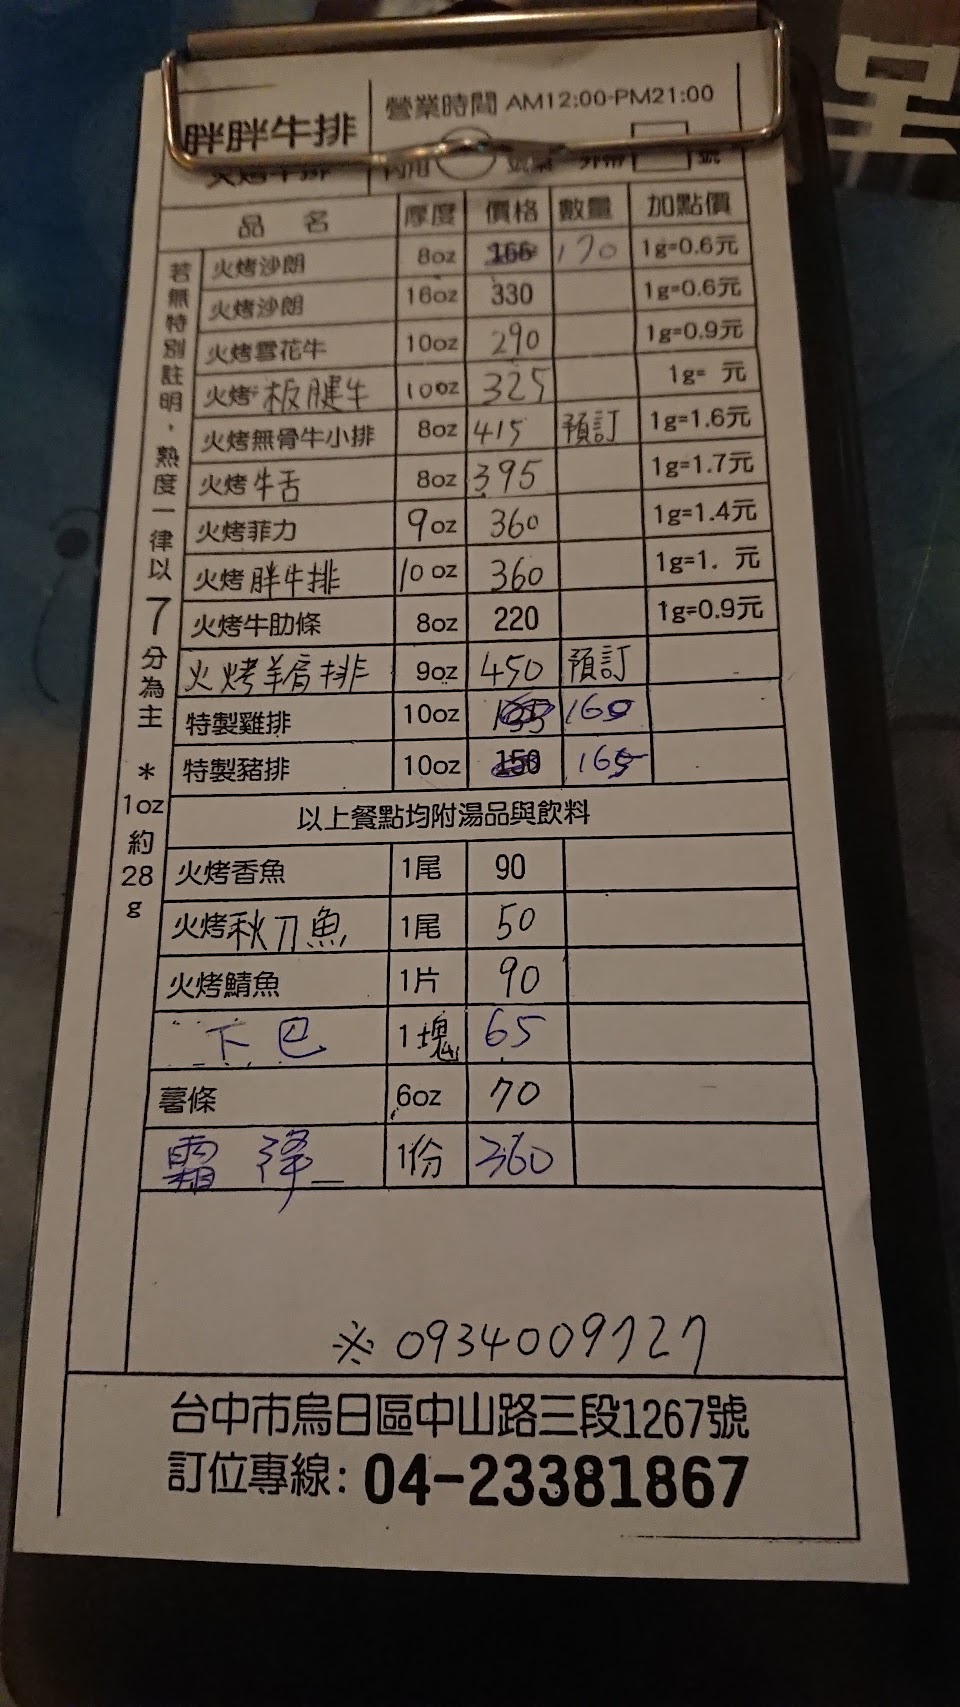 胖胖牛排
營業時間 AM12:00-PM21:00
火烤牛排 內用 外帶 號
品名 厚度 價格 數量 加點價
火烤沙朗 8oz 170 1g=0.6元
火烤沙朗 16oz 330 1g=0.6元
火烤雪花牛 10oz 290 1g=0.9元
火烤板腱牛 10oz 325 1g= 元
火烤無骨牛小排 8oz 415 預訂 1g=1.6元
火烤牛舌 8oz 395 1g=1.7元
火烤菲力 9oz 360 1g=1.4元
火烤胖牛排 10oz 360 1g=1. 元
火烤牛肋條 8oz 220 1g=0.9元
火烤羊肩排 9oz 450 預訂
特製雞排 10oz 165
特製豬排 10oz 150 165
若無特別註明,熟度一律以7分為主 *1oz約28g
以上餐點均附湯品與飲料
火烤香魚 1尾 90
火烤秋刀魚 1尾 50
火烤鯖魚 1片 90
下巴 1塊 65
薯條 6oz 70
霜降 1份 360
※0934009727
台中市烏日區中山路三段1267號
訂位專線: 04-23381867